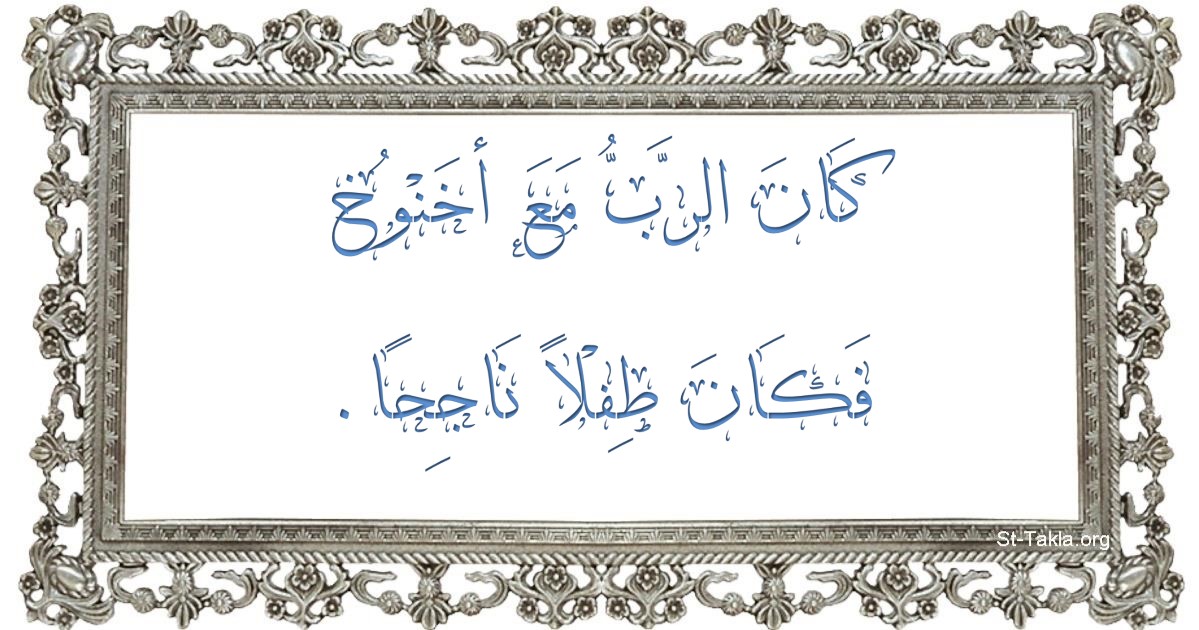 كَانَ الرَّبُّ مَعَ أخَنْوُخ
فَكَانَ طِفْلاً نَاجِحًا .
St-Takla.org